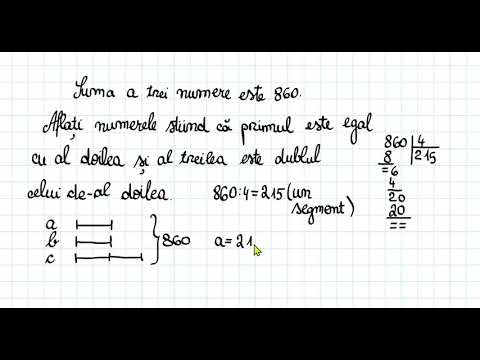 Suma a trei numere este 860.
Aflați numerele știind că primul este egal
cu al doilea și al treilea este dublul
celui de-al doilea.
860:4=215 (un
segment)
860 4
8 215
=6
4
20
20
==
a
b
c
860
a=21